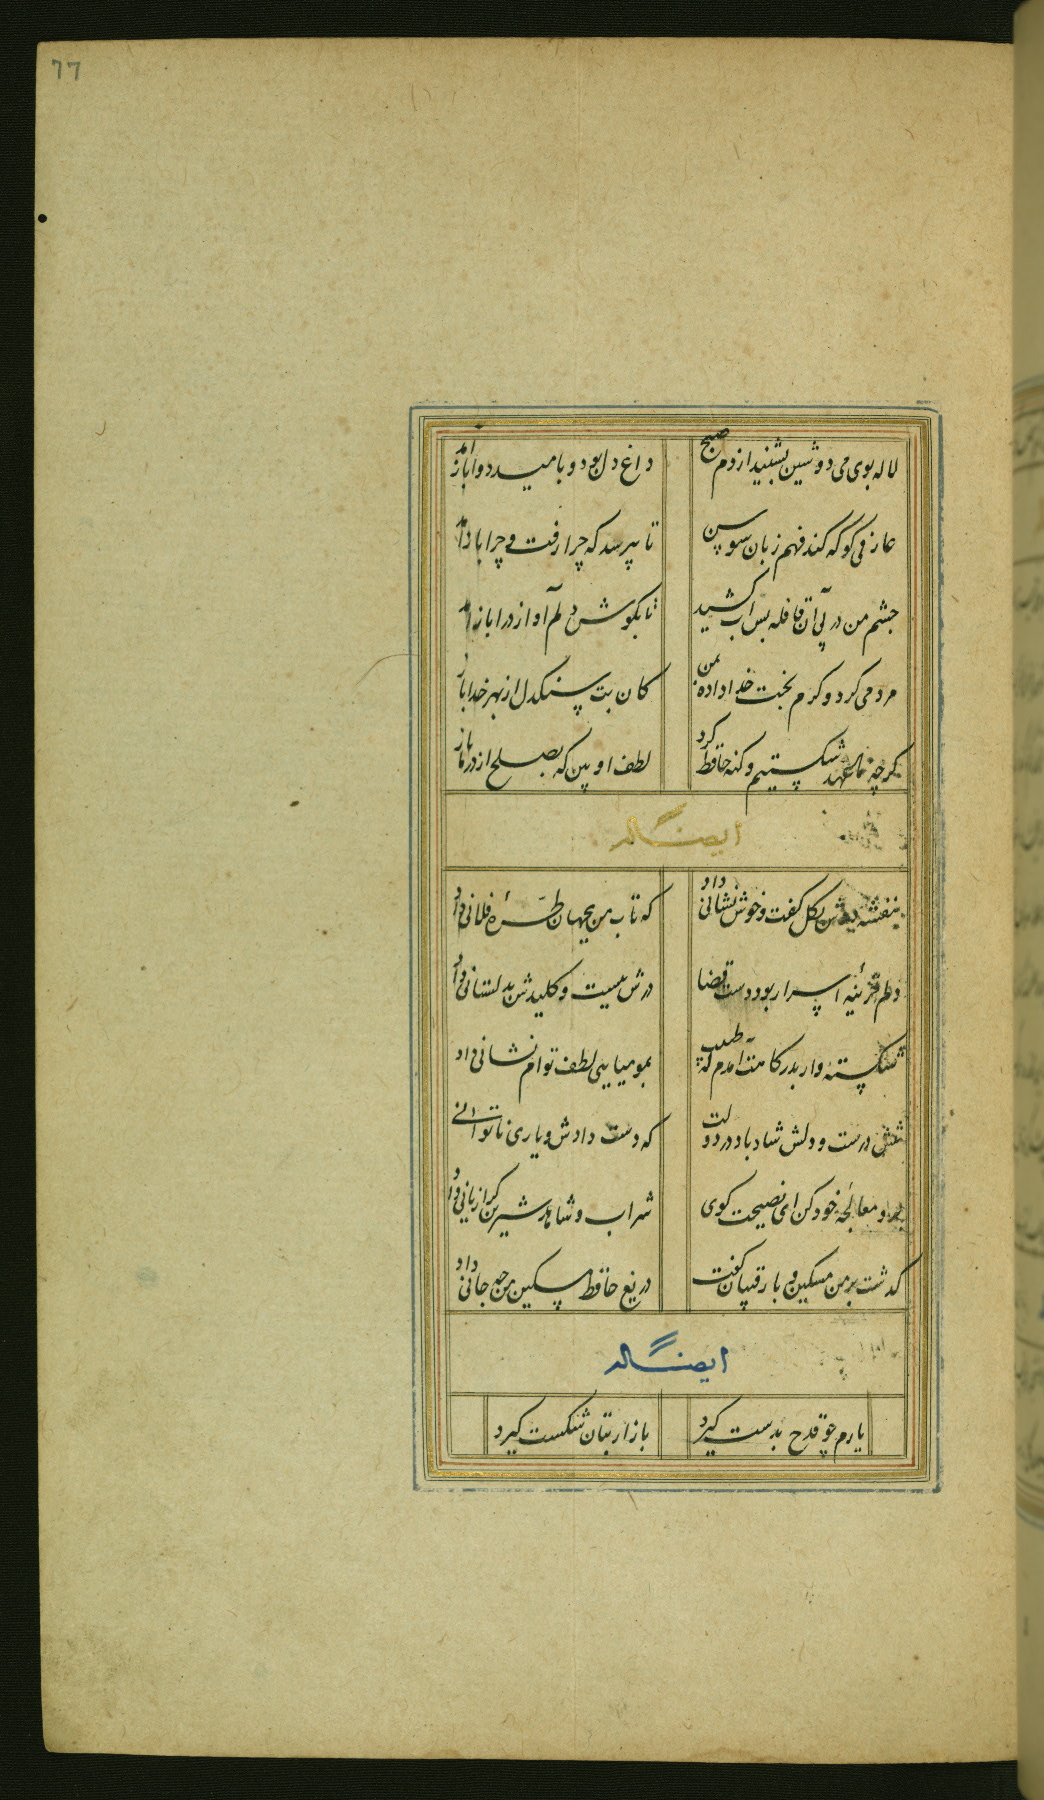 77
لاله بوی می دوشین بشنید از دم صبح داغ دل بود و بامید دوا باز آمد
عارفی کو که کند فهم زبان سوسن تا بپرسد که چرا رفت و چرا باز آمد
چشم من در پی آن قافله بس آب کشید تا بگوش دلم آواز درا باز آمد
مردمی کرد و کرم بخت خداداده بمن کان بت سنکدل از بهر خدا باز
کرچه ما عهد شکستیم و کنه حافظ کرد لطف او بین که بصلح از در ما باز
ایضاله
بنفشه دوش بکل کفت و خوش نشانی داد که تاب من بجهان طرّهٔ فلانی داد
دلم خزینه اسرار بود دست قضا درش ببست و کلیدش بدلستانی داد
شکسته وار بدرکاهت آمدم که طبیب بمومیایی لطف توام نشانی داد
تنش درست و دلش شاد باد در دولت که دست دادش و یاری ناتوانی
برو معالجه خود کن ای نصیحت کوی شراب و شاهد شیرین کرا زیانی داد
کذشت بر من مسکین و با رقیبان کفت دریغ حافظ مسکین من چه جانی داد
ایضاله
یارم چو قدح بدست کیرد بازار بتان شکست کیرد